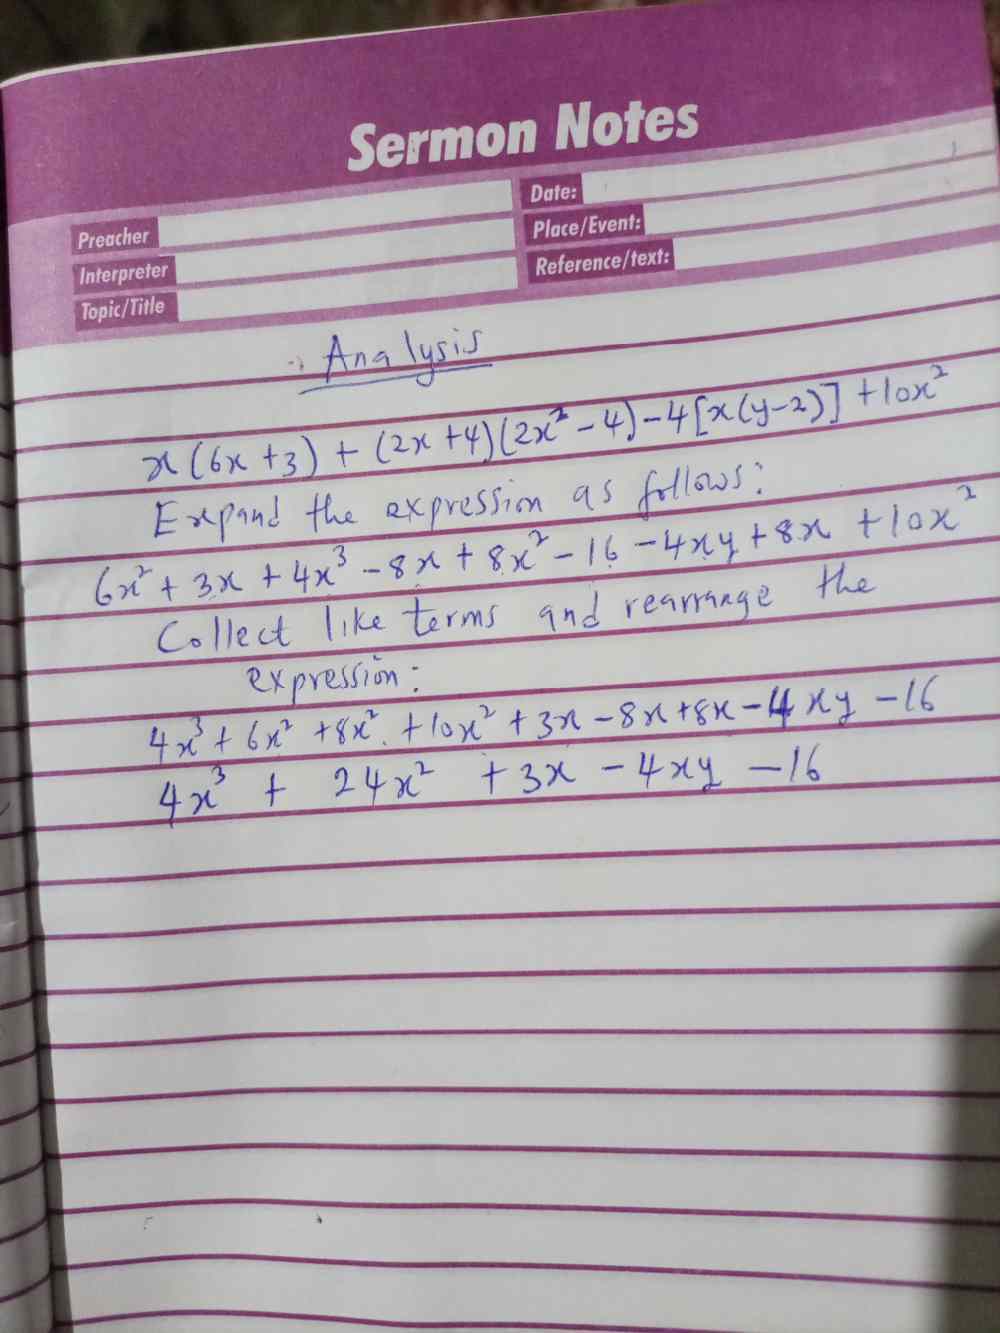 Sermon Notes
Preacher
Interpreter
Topic/Title
Date:
Place/Event:
Reference/text:
Analysis
x(6x+3) + (2x+4)(2x²-4)-4[x(y-2)] +10x²
Expand the expression as follows:
6x² + 3x + 4x³ - 8x + 8x² - 16 - 4xy + 8x + 10x²
Collect like terms and rearrange the
expression:
4x³ + 6x² + 8x² + 10x² + 3x - 8x + 8x - 4xy - 16
4x³ + 24x² + 3x - 4xy - 16